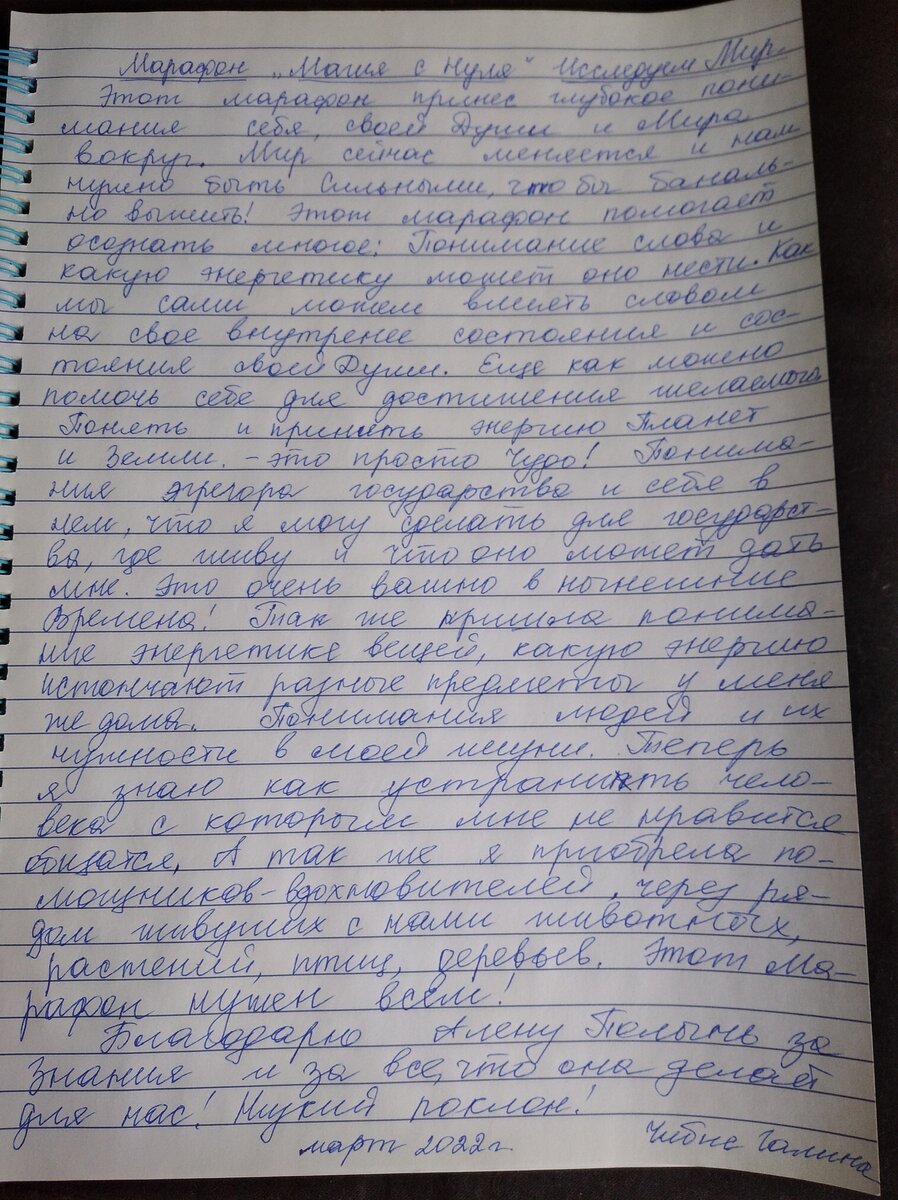 Марафон „Магия с нуля" Исследуем Мир.
Этот марафон принес глубокое пони-
мания себя, своей Души и Мира
вокруг. Мир сейчас меняется и нам
нужно быть Сильными, что бы баналь-
но выжить! Этот марафон помогает
осознать многое: Понимание слова и
какую энергетику может оно нести. Как
мы сами можем влиять словом
на свое внутренее состояния и сос-
тояния своей Души. Еще как можно
помочь себе для достижения желаемого
Понять и принять энергию Планет
и Земли. - это просто Чудо! Понима-
ния эгрегора государства и себя в
нем, что я могу сделать для государст-
ва, где живу и что оно может дать
мне. Это очень важно в нынешние
Времена! Так же пришла понима-
ние энергетике вещей, какую энергию
источают разные предметы у меня
же дома. Понимания людей и их
нужности в моей жизни. Теперь
я знаю как устранить чело-
века с которым мне не нравится
общатся, А так же я приобрела по-
мощников-вдохновителей, через ря-
дом живущих с нами животных,
растений, птиц, деревьев. Этот Ма-
рафон нужен всем!
Благодарю Алену Полынь за
Знания и за все, что она делает
для нас! Низкий поклон!
март 2022 г. Чибис Галина